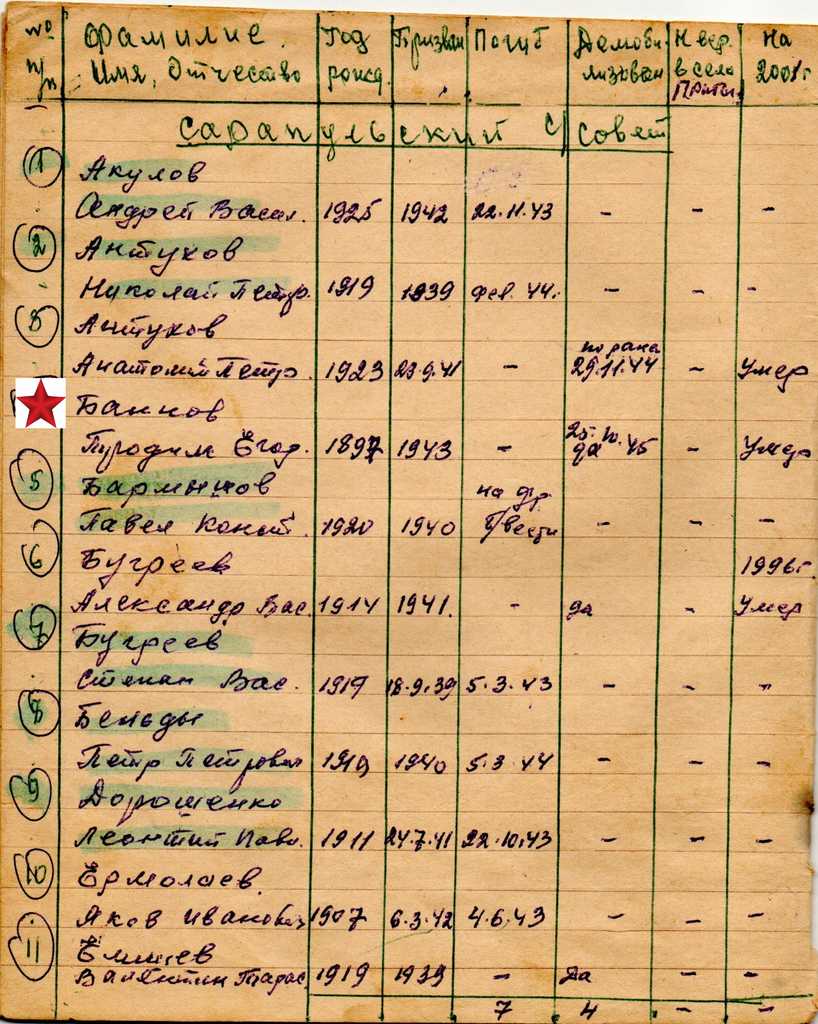 № Фамилие. Год Призван Погиб Демоби- Н вер. На
п/п Имя, Отчество рожд. лизован в село 2001г
Сарапульский с/совет
1 Акулов
Андрей Васил. 1925 1942 22.11.43 - - -
2 Антухов
Николай Петр. 1919 1939 фев. 44. - - -
3 Антухов
по рана
Анатолий Петр. 1923 23.9.41 - 29.11.44 - Умер
Баннов
25.10.
Егор. 1897 1943 - да 45 - Умер
5
на др.
Павел Конст. 1920 1940 - - -
6 Бугреев 1996г.
Александр Вас. 1914 1941. - да - Умер
7 Бугреев
Степан Вас. 1917 18.9.39 5.3.43 - - -
8 Бельды
Петр Петрович 1919 1940 5.3.44 - - -
9 Дорошенко
Леонтий Павл. 1911 24.7.41 22.10.43 - - -
10 Ермолаев
Яков Иванович 1907 6.3.42 4.6.43 - - -
11
Валентин Тарас. 1919 1939 - да - -
7 4 - -